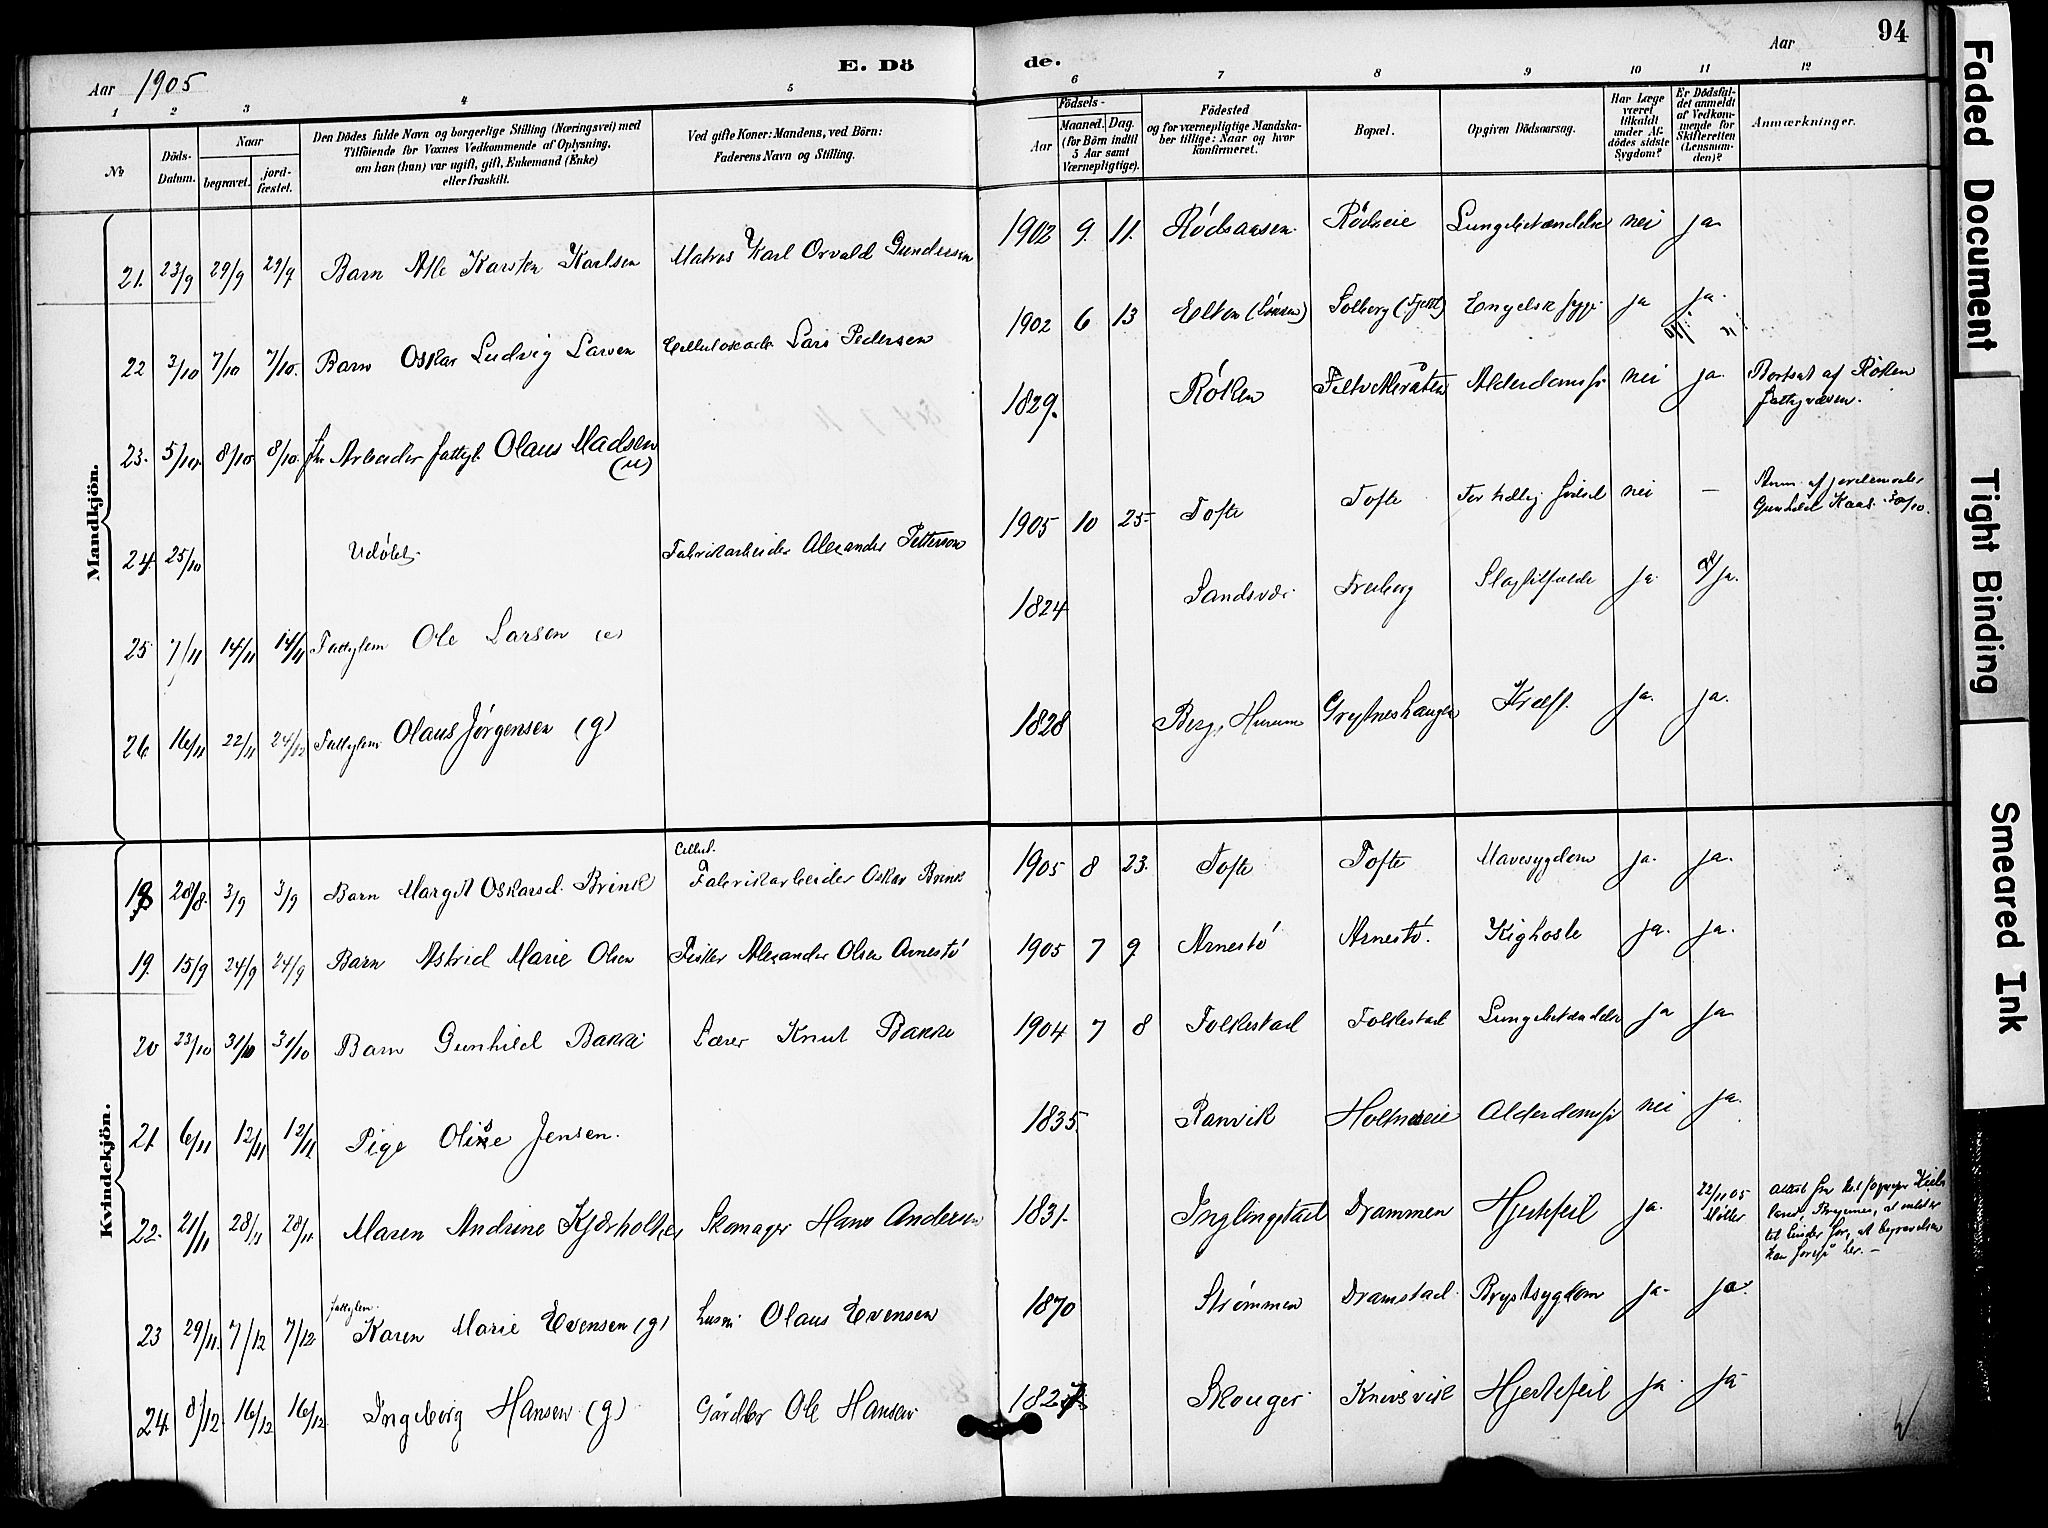 94
Aar 1905
E. Dö de.
Aar
1 2 3 4 5 6 7 8 9 10 11 12
No
Döds-Datum.
Naar
begravet.
jord-fæstet.
Den Dödes fulde Navn og borgerlige Stilling (Næringsvei) med
Tilföiende for Voxnes Vedkommende af Oplysning,
om han (hun) var ugift, gift, Enkemand (Enke)
eller fraskilt.
Ved gifte Koner: Mandens, ved Börn:
Faderens Navn og Stilling.
Födsels-
Aar
Maaned. Dag.
(for Börn indtil
5 Aar samt
Værnepligtige).
Födested
og for værnepligtige Mandska-
ber tillige: Naar og hvor
konfirmeret.
Bopæl.
Opgiven Dödsaarsag.
Har Læge
været
tilkaldt
under Af-
dödes sidste
Sygdom?
Er Dödsfal-
det anmeldt
af Vedkom-
mende for
Skifteretten
(Lensman-
den)?
Anmærkninger.
Mandkjön.
21. 23/9 29/9 29/9 Barn Atle Karsten Karlsen Matros Karl Orvald Gundersen 1902 9. 11. Rödsaasen Rödseie Lungebetændelse nei ja
22 3/10 7/10 7/10. Barn Oskar Ludvig Larsen Celluloseark Lars Pedersen 1902 6 13 Elten Solberg Engelsk syge ja ja.
23. 5/10. 8/10 8/10. Arbeider fattigl. Olaus Madsen (u) 1829. Røken Alderdomss. nei ja. Bortsat af Røken
fattigvæsen.
24. 25/10 Udøbt Fabrikarbeider Alexander Petterson 1905 10 25 Tofte Tofte For tidlig födsel nei — Anm. af jordemoder
Gunhild Kaas 30/10.
25 7/11 14/11 14/11 Fattiglem Ole Larsen (e) 1824 Sandsvær Freberg Slagtilfælde ja. ja.
26. 16/11 22/11 24/12 Fattiglem Olaus Jørgensen (g) 1828 Berg, Hurum Grytneshaugen Kræft. ja. ja.
Kvindekjön.
18 28/8. 3/9 3/9 Barn Margit Oskarsd. Brink Cellul.
Fabrikarbeider Oskar Brink 1905 8 23. Tofte Tofte Mavesygdom ja. ja.
19. 15/9 24/9 24/9 Barn Astrid Marie Olsen Fisker Alexander Olsen Arnestö 1905 7 9. Arnestö Arnestö. Kighoste ja. ja.
20 23/10 31/10 31/10 Barn Gunhild Bakke Lærer Knut Bakke 1904 7 8 Folkestad Folkestad Lungebetændelse ja ja
21. 6/11 12/11 12/11 Pige Olise Jensen. 1835. Ranvik Holtneseie Alderdomss. nei ja.
22. 21/11 28/11 28/11. Maren Andrine Kjærholther Skomager Hans Andersen 1831. Inglingstad Drammen Hjertefeil ja. 22/11 05
Møller
at begravelsen
kan foregå her. —
23 29/11. 7/12 7/12. Fattiglem.
Karen Marie Evensen (g) Husm Olaus Evensen 1870 Strömmen Dramstad. Brystsygdom ja- ja.
24. 8/12 16/12 16/12 Ingeborg Hansen (g) Gårdbr Ole Hansen 1827 Skouger Knivsvik Hjertefeil ja ja
Faded Document
Tight Binding
Smeared Ink